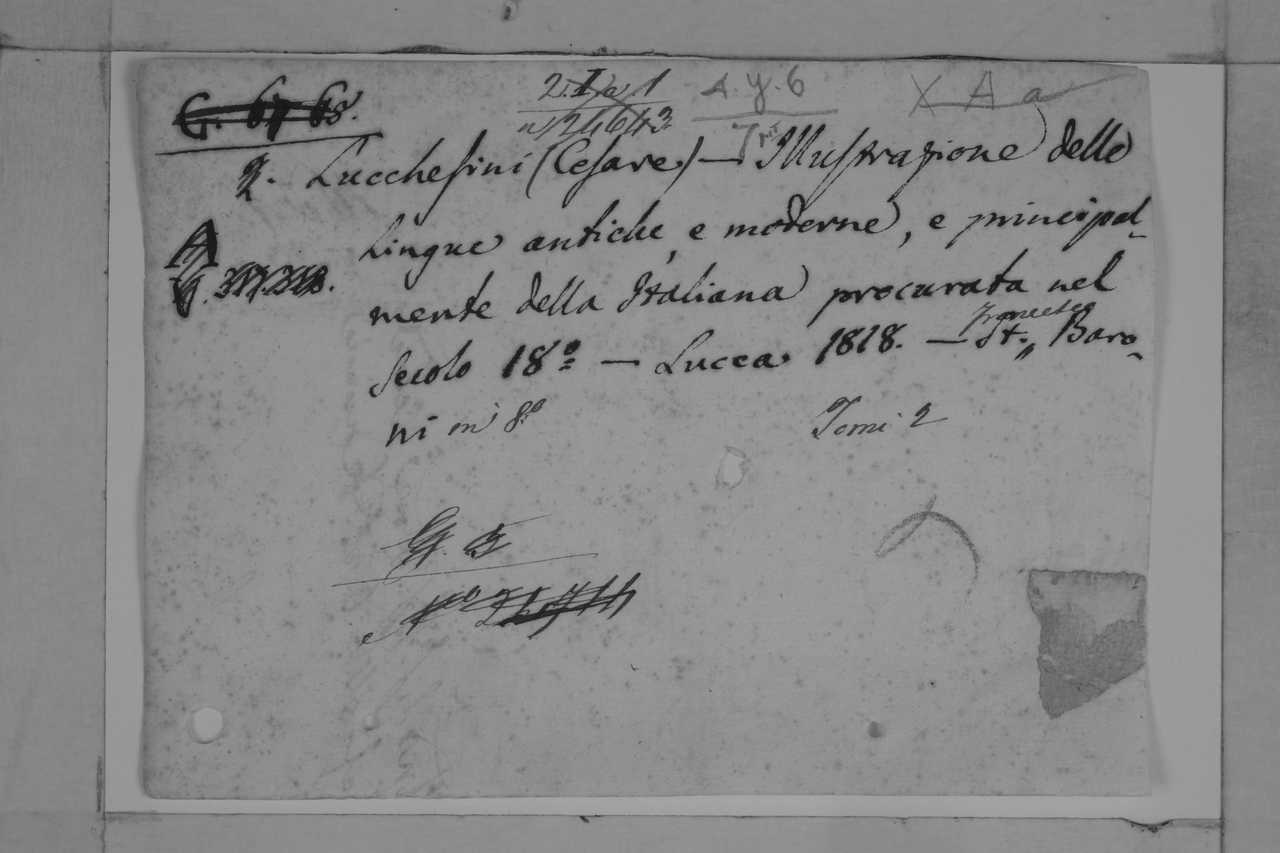 G. 67 68.
2. I. a 1
4. y. 6
X A a
n. 24643.
2. Lucchesini (Cesare) — Illustrazione delle
Lingue antiche, e moderne, e principal-
mente della Italiana procurata nel
Secolo 18º — Lucca 1818. — St. Francesco Baro-
ni in 8º Tomi 2
G. 5
Nº